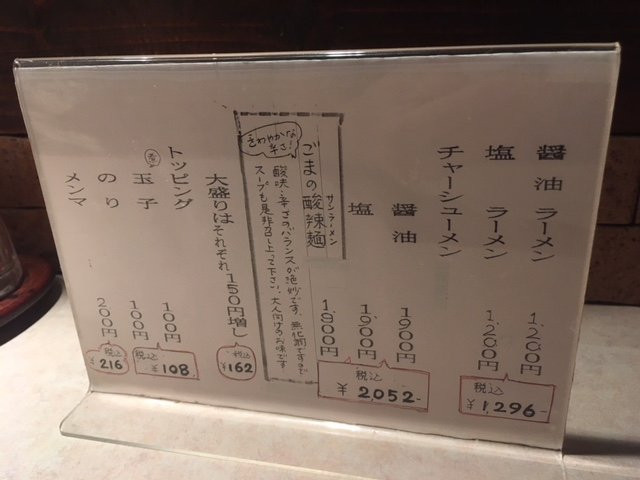 醤油ラーメン 1,200円
塩ラーメン 1,200円
税込 ¥1,296-
チャーシューメン
醤油 1,900円
塩 1,900円
ごまの酸辣麺 1,900円
サンラーメン
税込 ¥2052-
さわやかな辛さ!
酸味、辛さのバランスが絶妙です。無化調ですので
スープも是非召し上って下さい…大人向けのお味です
大盛りはそれぞれ、150円増し
税込 ¥162
トッピング
玉子 100円
のり 100円
税込 ¥108.
メンマ 200円
税込 ¥216